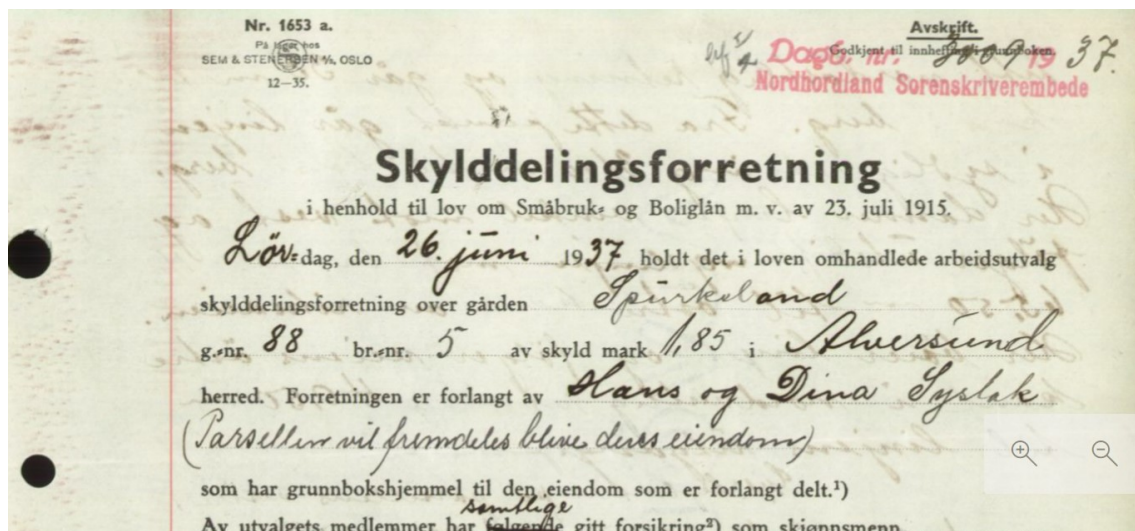 Nr. 1653 a.
På lager hos
SEM & STENERSEN A/S, OSLO
12—35.
Avskrift.
Godkjent til innhefting i grunnboken.
Dagb. nr. 3009 19 37.
Nordhordland Sorenskriverembede
Skylddelingsforretning
i henhold til lov om Småbruk- og Boliglån m. v. av 23. juli 1915.
Lör-dag, den 26. juni 1937 holdt det i loven omhandlede arbeidsutvalg
skylddelingsforretning over gården Spurkeland
g.-nr. 88 br.-nr. 5 av skyld mark 1,85 i Alversund
herred. Forretningen er forlangt av Hans og Dina Syslak
(Parsellen vil fremdeles blive deres eiendom)
som har grunnbokshjemmel til den eiendom som er forlangt delt.¹)
samtlige
Av utvalgets medlemmer har følgende gitt forsikring²) som skjønnsmenn